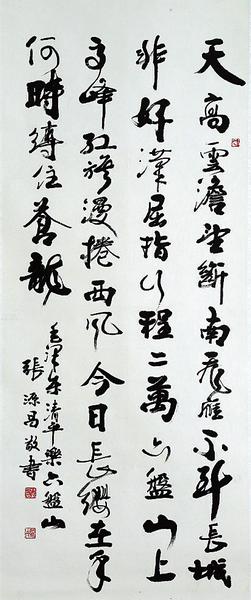 天高雲澹望斷南飛雁不到長城
非好漢屈指行程二萬六盤山上
高峰紅旗漫捲西風今日長纓在手
何時縛住蒼龍
毛澤東清平樂六盤山
張源昌敬書